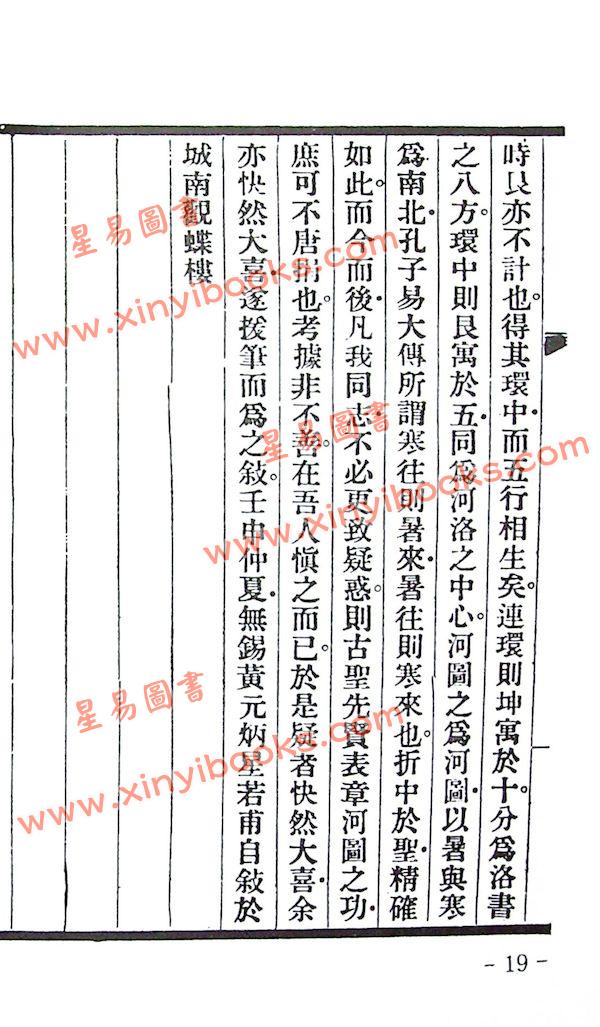 時艮亦不計也。得其環中。而五行相生矣。連環則坤寓於十。分爲洛書
之八方。環中則艮寓於五。同爲河洛之中心。河圖之爲河圖。以暑與寒
爲南北。孔子易大傳所謂寒往則暑來。暑往則寒來也。折中於聖。精確
如此。而今而後。凡我同志。不必更致疑惑。則古聖先賢表章河圖之功。
庶可不唐捐也。考據非不善。在吾人愼之而已。於是疑者快然大喜。余
亦快然大喜。遂援筆而爲之敍。壬申仲夏。無錫黃元炳星若甫自敍於
城南觀蝶樓
- 19 -
星易圖書
www.xinyibooks.com
星易圖書
www.xinyibooks.com
星易圖書
www.xinyibooks.com